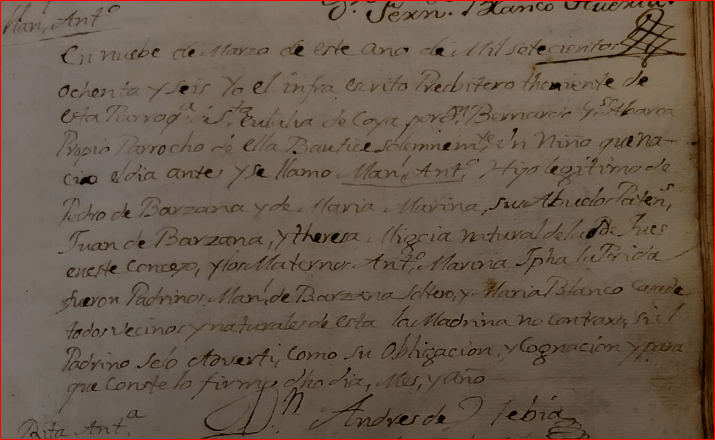 Man.l Ant.º
En nuebe de Marzo de este Ano de Mil setecientos
ochenta y seis Yo el infra escrito Presbitero theniente de
esta Parroq.ª de S.ta Eulalia de Coya por Dn Bernardo Abarca
Propio Parrocho de ella Bautice solemnem.te Un Niño que na-
cio el dia antes y se llamo Man.l Ant.º Hijo legitimo de
Pedro de Barzana y de Maria Marina, sus Abuelos Patern.s
Juan de Barzana, y theresa natural de
en este Concejo, y los Maternos Ant.º Marina Jpha la Prida
fueron Padrinos Man.l de Barzana Soltero, y Maria Blanco
todos vecinos y naturales de esta la Madrina no contraxo, si el
Padrino se lo Adverti, como su Obligacion, y Cognacion y para
que Conste lo firmo dho dia, Mes, y Año
Dn Andres de
Rita Ant.ª